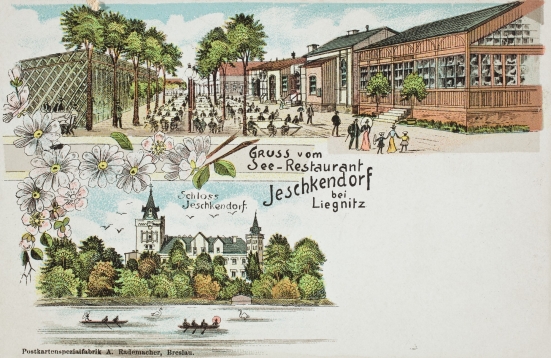 Gruss vom
See-Restaurant
Jeschkendorf
bei
Liegnitz
Schloss
Jeschkendorf.
Postkartenspezialfabrik A. Rademacher, Breslau.